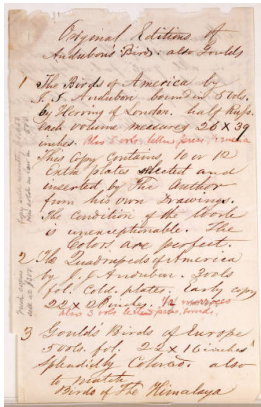 Original Editions of
Audubon's Birds: also Goulds
1 The Birds of America by
J. J. Audubon bound in 5 vols.
by Herring of London. half Russ.
each volume measures 26 x 39
inches. Also 5 vols letter press
This Copy Contains, 10 or 12
Extra plates selected and
inserted by The Author
from his own Drawings.
The Condition of the Work
is unexceptionable. The
Colors are perfect.
2 The Quadrupeds of America
by J. J. Audubon. 3 vols
fol. Cold. plates. early copy
22 x 28 inches. 1/2 morocco
also 3 vols letter press, bound.
3 Gould's Birds of Europe
5 vols. fol. 22 x 16 inches
Splendidly Colored. also
to match
Birds of the Himalaya